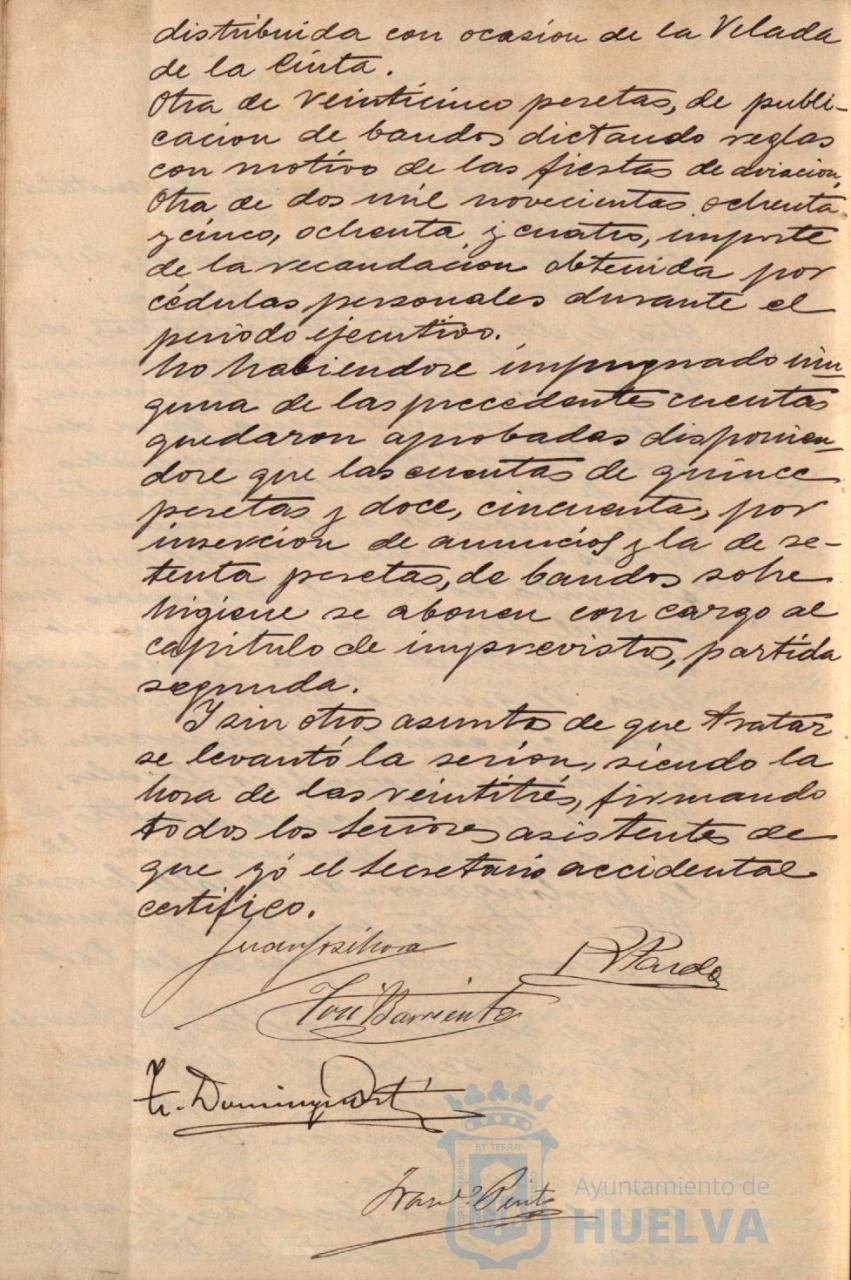 distribuida con ocasion de la Velada
de la Cinta.
Otra de veinticinco pesetas, de publi-
cacion de bandos dictando reglas
con motivo de las fiestas de aviacion
Otra de dos mil novecientas ochenta
y cinco, ochenta y cuatro, importe
de la recaudacion obtenida por
cédulas personales durante el
periodo ejecutivo.
No habiendose impugnado nin-
guna de las precedentes cuentas
quedaron aprobadas disponien-
dose que las cuentas de quince
pesetas y doce, cincuenta, por
insercion de anuncios y la de se-
tenta pesetas, de bandos sobre
higiene se abonen con cargo al
capitulo de imprevistos, partida
segunda.
Y sin otros asuntos de que tratar
se levantó la sesion, siendo la
hora de las veintitrés, firmando
todos los Señores asistentes de
que yó el Secretario accidental
certifico.
Juan José Mora
R Pardo
José Barrientos
Fr. Dominguez
Franco. Perito
ET TERRÆ
PORTUS MARIS
CUSTODIO
Ayuntamiento de
HUELVA